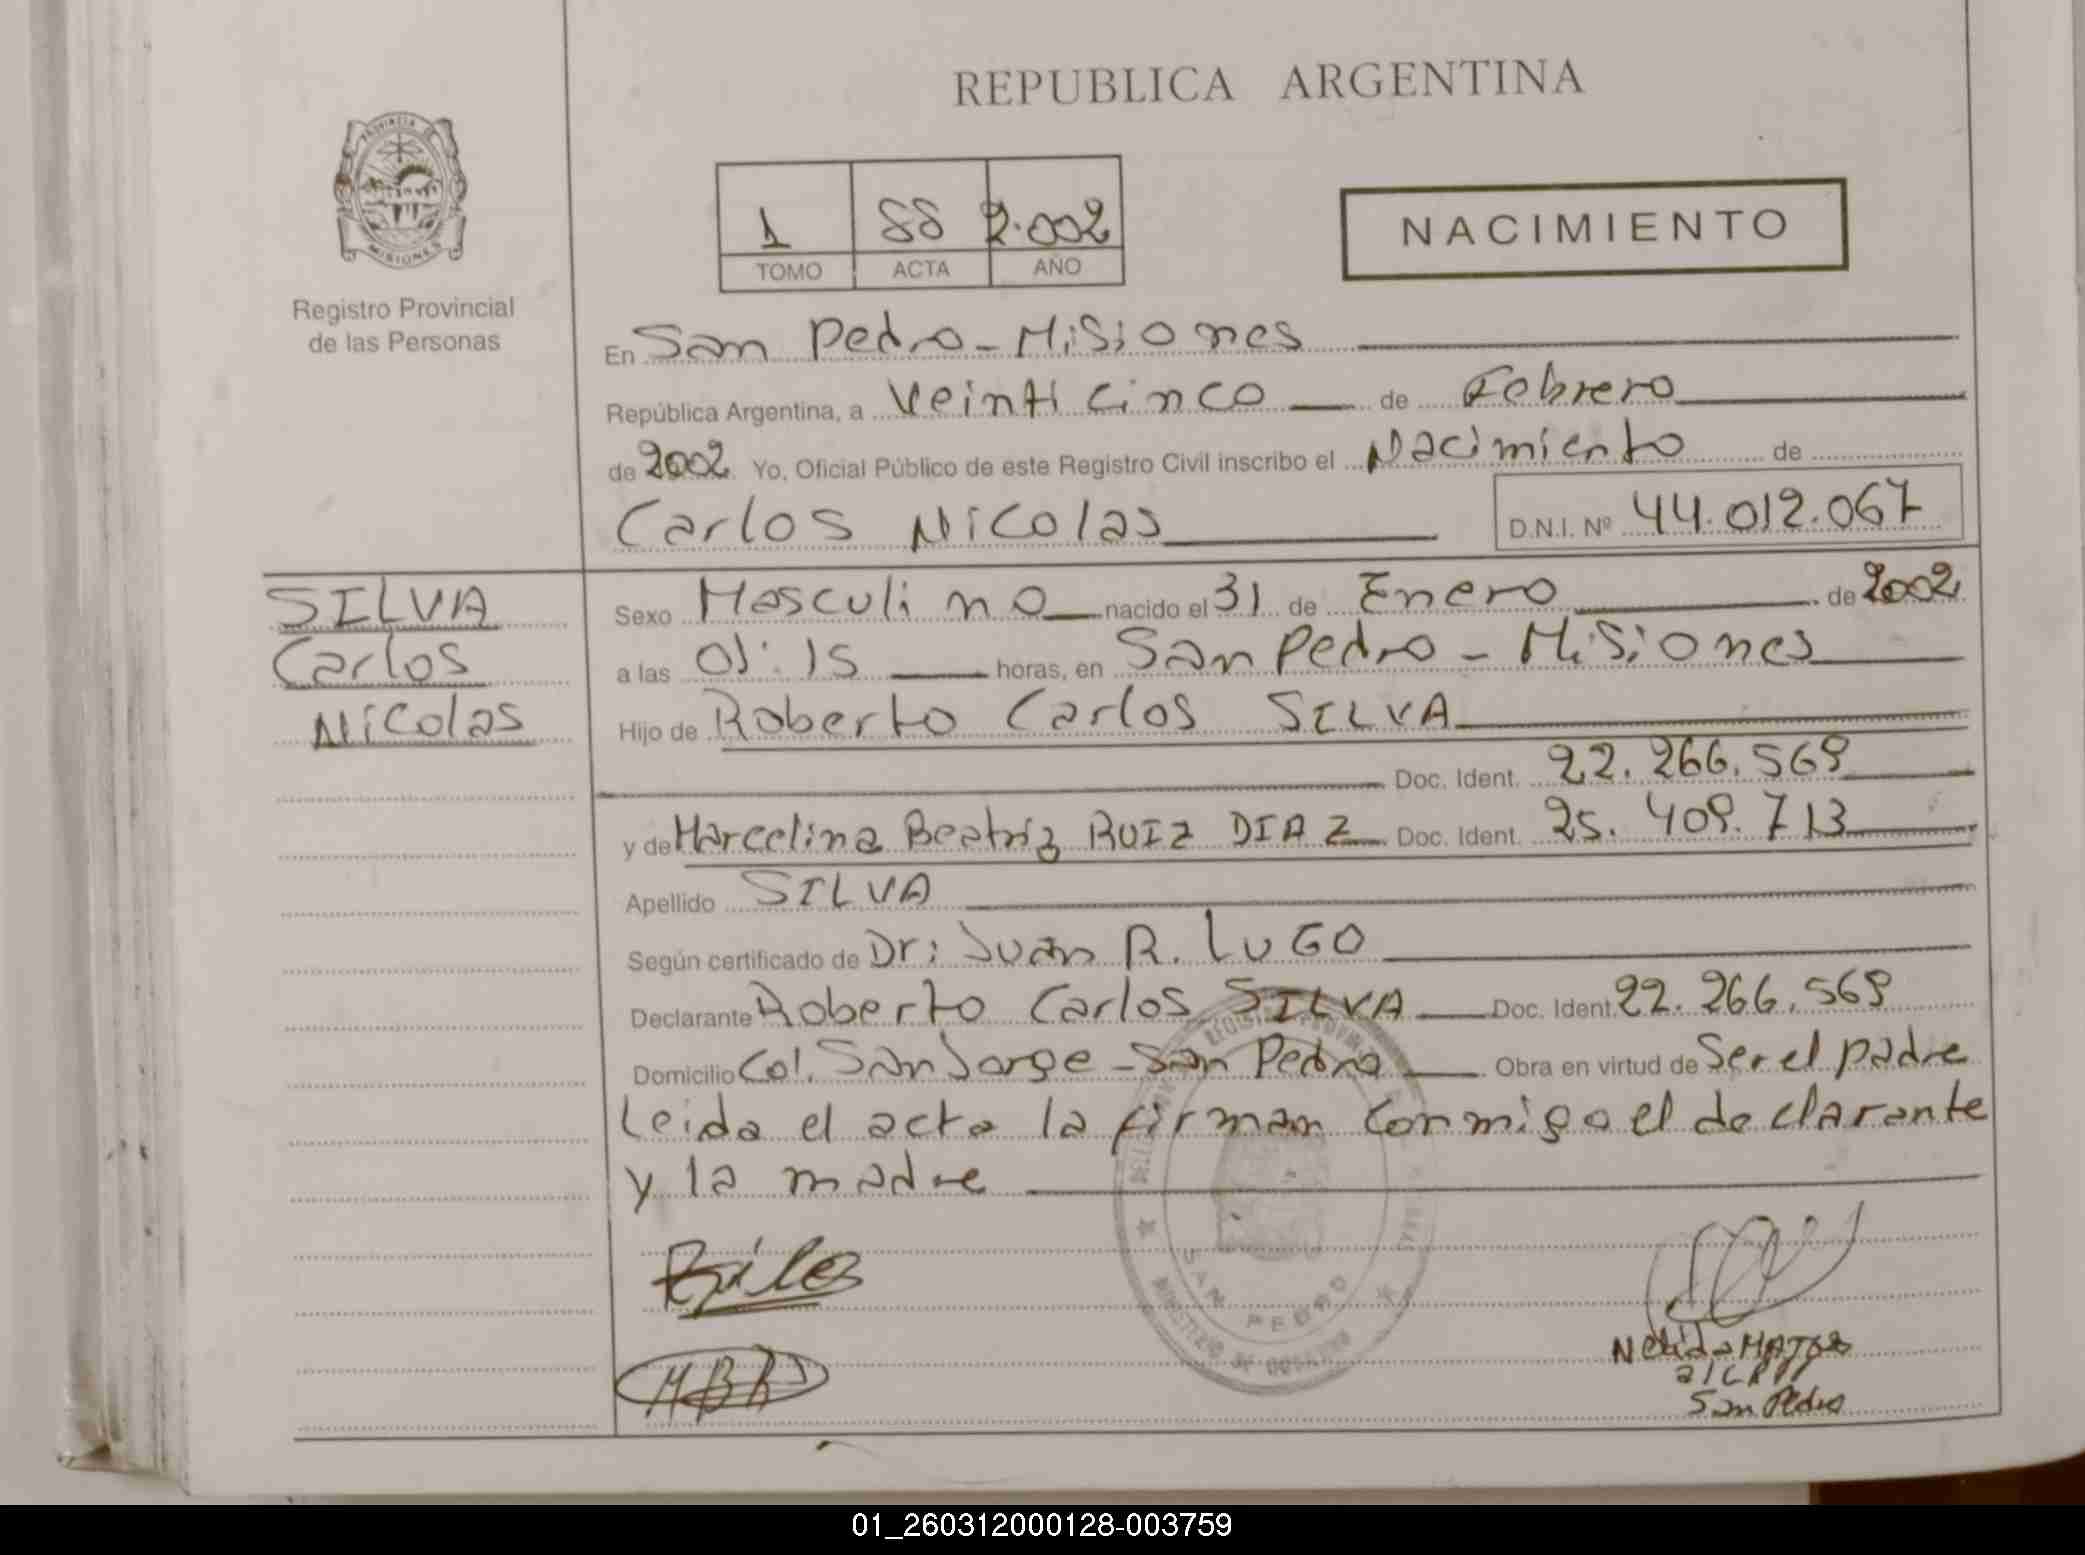 REPUBLICA ARGENTINA
PROVINCIA DE
MISIONES
Registro Provincial
de las Personas
1 88 2.002
TOMO ACTA AÑO
NACIMIENTO
En San Pedro - Misiones
República Argentina, a Veinti cinco de Febrero
de 2002 Yo, Oficial Público de este Registro Civil inscribo el Nacimiento de
Carlos Nicolas D.N.I. Nº 44.012.067
SILVA
Carlos
Nicolas
Sexo Masculino nacido el 31 de Enero de 2002
a las 01:15 horas, en San Pedro - Misiones
Hijo de Roberto Carlos SILVA
Doc. Ident. 22.266.569
y de Marcelina Beatriz RUIZ DIAZ Doc. Ident. 25.409.713
Apellido SILVA
Según certificado de Dr: Juan R. LUGO
Declarante Roberto Carlos SILVA Doc. Ident. 22.266.569
Domicilio Col. San Jorge - San Pedro Obra en virtud de Ser el padre
Leida el acta la firman conmigo el declarante
y la madre
SAN PEDRO
MINISTERIO DE GOBIERNO
MBRD
Nelida MATOS
San Pedro
01_260312000128-003759